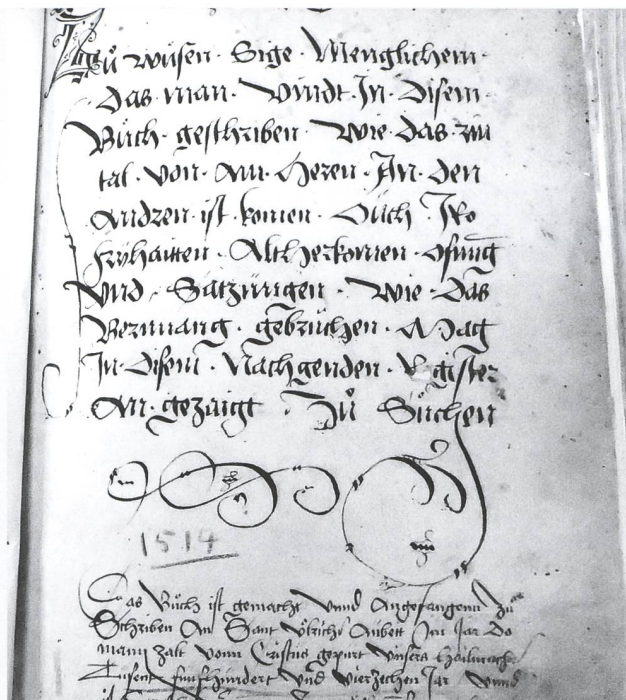 Zů wüsen · Sige · Menglichem ·
Das man · Vindt · In · Disem ·
Bůch · geschriben · Wie · das ·
tal · von · Ain · Heren · An · den
Andren · ist · komen · Ouch · Iro
fryhaitten · Altherkomen · Ofnung
Vnd · Satzungen · Wie · Das
gebruchen · Mag
In · Disem · Nachgenden · Register
An · gezaigt · Zů Sůchen
1514
Das Bůch ist gemacht vnnd Angefangenn Zů
Schriben An Sant Vlrichs Aubett Im Jar Do
mann zalt vonn Cristus gepurt vnsers
Tusent fünfhundert vnd vierzechen Jar vnnd